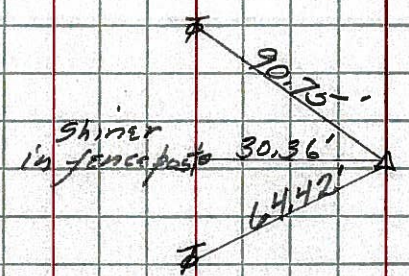 90.75--
Shiner
in fence post 30.36'
64.42'